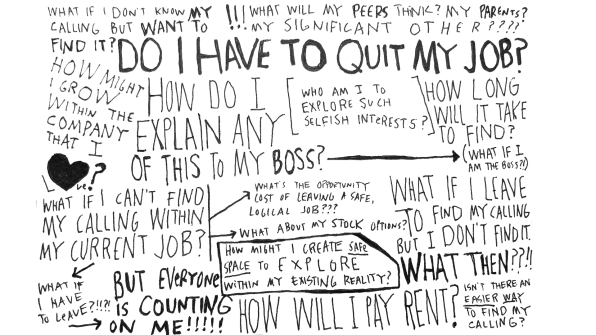 WHAT IF I DON'T KNOW MY
CALLING BUT WANT TO
FIND IT?
!!!
WHAT WILL MY PEERS THINK? MY PARENTS?
MY SIGNIFICANT OTHER????
DO I HAVE TO QUIT MY JOB?
HOW MIGHT
I GROW
WITHIN THE
COMPANY
THAT I
L♥ve?
HOW DO I
EXPLAIN ANY
OF THIS TO MY BOSS?
[WHO AM I TO
EXPLORE SUCH
SELFISH INTERESTS?]
HOW LONG
WILL IT TAKE
TO FIND?
(WHAT IF I
AM THE BOSS?!)
WHAT IF I CAN'T FIND
MY CALLING WITHIN
MY CURRENT JOB?
WHAT'S THE OPPORTUNITY
COST OF LEAVING A SAFE,
LOGICAL JOB???
WHAT ABOUT MY STOCK OPTIONS?
HOW MIGHT I CREATE SAFE
SPACE TO EXPLORE
WITHIN MY EXISTING REALITY?
WHAT IF I LEAVE
TO FIND MY CALLING
BUT I DON'T FIND IT.
WHAT THEN??!!
WHAT IF
I HAVE
TO LEAVE?!!?!
BUT EVERYONE
IS COUNTING
ON ME!!!!!
HOW WILL I PAY RENT?
ISN'T THERE AN
EASIER WAY
TO FIND MY
CALLING?